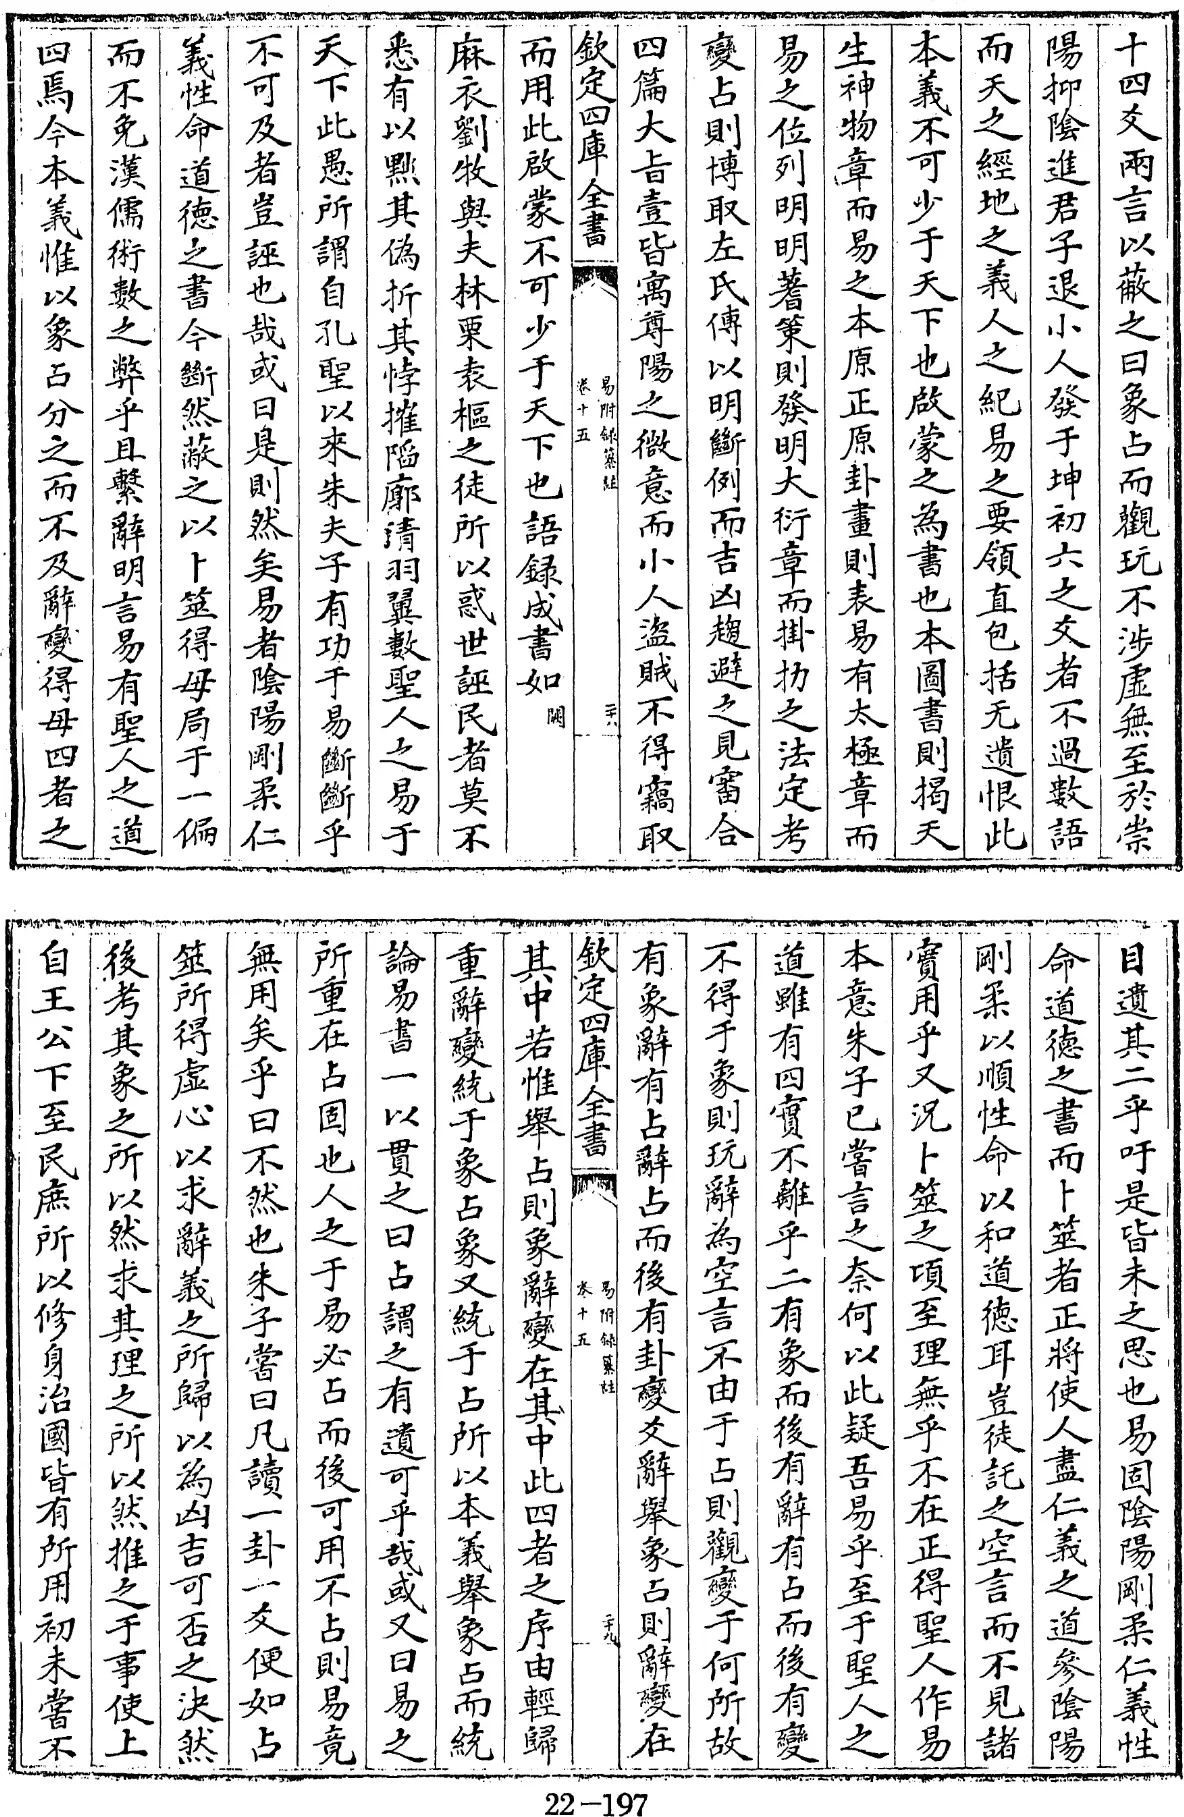 十四爻兩言以蔽之曰象占而觀玩不涉虛無至於崇
陽抑陰進君子退小人發于坤初六之爻者不過數語
而天之經地之義人之紀易之要領直包括无遺恨此
本義不可少于天下也啟蒙之為書也本圖書則揭天
生神物章而易之本原正原卦畫則表易有太極章而
易之位列明明蓍策則發明大衍章而掛扐之法定考
變占則博取左氏傳以明斷例而吉凶趨避之見審合
四篇大旨壹皆寓尊陽之微意而小人盜賊不得竊取
欽定四庫全書
易附録纂註
卷十五
二十八
而用此啟蒙不可少于天下也語録成書如闕
麻衣劉牧與夫林栗袁樞之徒所以惑世誣民者莫不
悉有以黜其偽折其悖摧陷廓清羽翼數聖人之易于
天下此愚所謂自孔聖以來朱夫子有功于易斷斷乎
不可及者豈誣也哉或曰是則然矣易者陰陽剛柔仁
義性命道德之書今斷然蔽之以卜筮得毋局于一偏
而不免漢儒術數之弊乎且繫辭明言易有聖人之道
四焉今本義惟以象占分之而不及辭變得毋四者之
目遺其二乎吁是皆未之思也易固陰陽剛柔仁義性
命道德之書而卜筮者正將使人盡仁義之道參陰陽
剛柔以順性命以和道德耳豈徒託之空言而不見諸
實用乎又況卜筮之頃至理無乎不在正得聖人作易
本意朱子已嘗言之奈何以此疑吾易乎至于聖人之
道雖有四實不離乎二有象而後有辭有占而後有變
不得于象則玩辭為空言不由于占則觀變于何所故
有象辭有占辭占而後有卦變爻辭舉象占則辭變在
欽定四庫全書
易附録纂註
卷十五
二十九
其中若惟舉占則象辭變在其中此四者之序由輕歸
重辭變統于象占象又統于占所以本義舉象占而統
論易書一以貫之曰占謂之有遺可乎哉或又曰易之
所重在占固也人之于易必占而後可用不占則易竟
無用矣乎曰不然也朱子嘗曰凡讀一卦一爻便如占
筮所得虛心以求辭義之所歸以為凶吉可否之決然
後考其象之所以然求其理之所以然推之于事使上
自王公下至民庶所以修身治國皆有所用初未嘗不
22-197